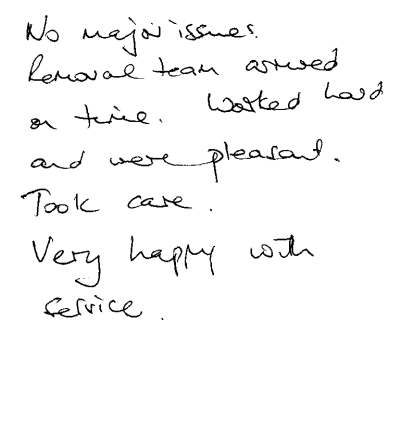 No major issues.
Removal team arrived
on time. Worked hard
and were pleasant.
Took care.
Very happy with
service.